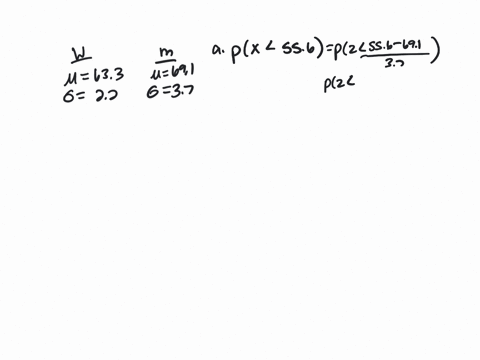 W
μ = 63.3
σ = 2.7
m
μ = 69.1
σ = 3.7
a. p(x < 55.6) = p(z < (55.6 - 69.1)/3.7)
p(z <